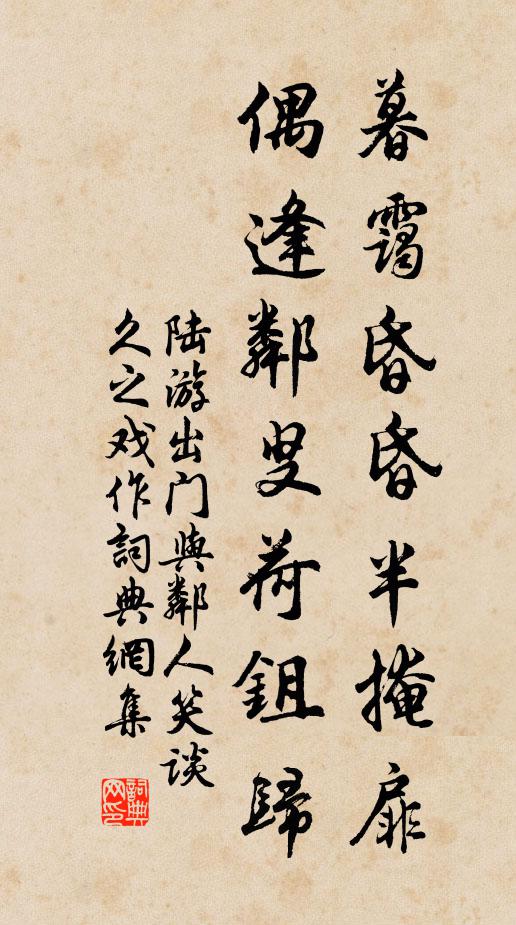 暮靄昏昏半掩扉
偶逢鄰叟荷鉏歸
陆游出门與鄰人笑谈
久之戏作詞典網集
詞典
网印